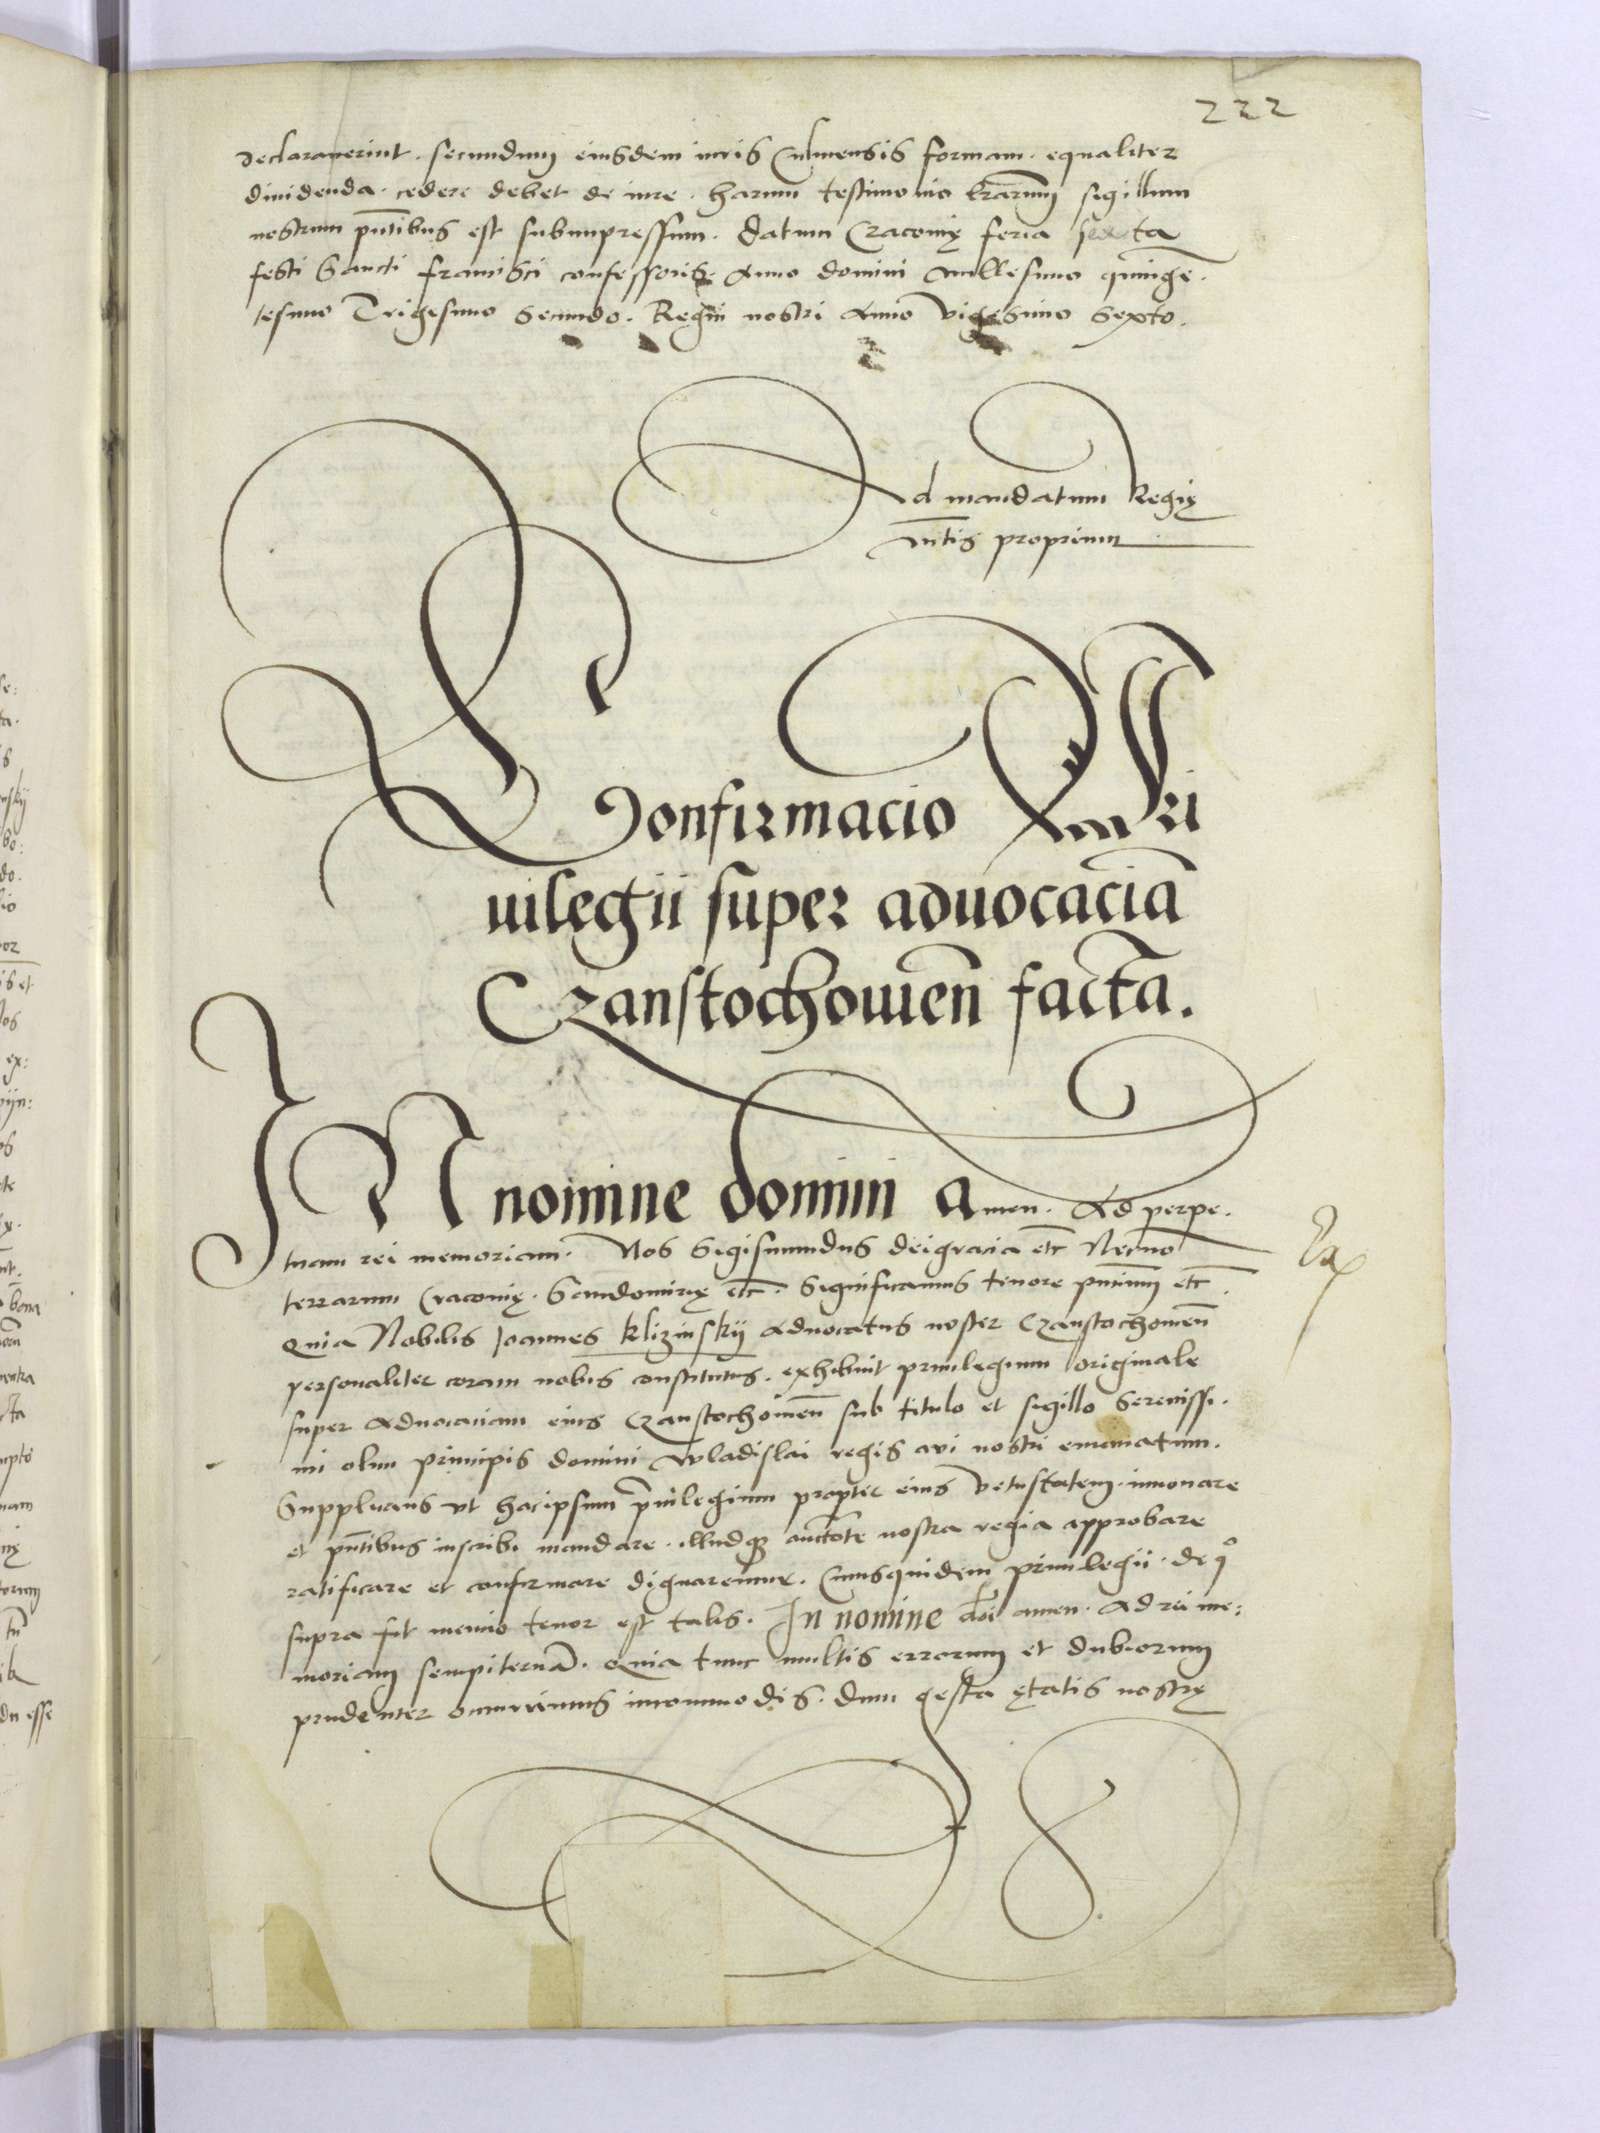 222
declarauerint. secundum eiusdem iuris Culmensis formam. equaliter
diuidenda. cedere debet de iure. harum testimonio lrarum sigillum
nostrum pntibus est subimpressum. datum Cracouię feria sexta
festi Sancti francisci confessoris. Anno domini millesimo quinge.
tesimo Trigesimo Secundo. Regni nostri Anno vigesimo Sexto.
Ad mandatum Regię
mtis proprium
Confirmacio Pri
uilegii super aduocaciā
Czanstochouien̄ facta.
IN nomine domini Amen. Ad perpe.
tuam rei memoriam. Nos Sigismundus dei gracia etc Necno
terrarum Cracouię. Sandomirię etc. Significamus tenore pntium etc.
Quia Nobilis Joannes Klizinskij Aduocatus noster Czanstochouien̄
personaliter coram nobis constitutus. exhibuit priuilegium originale
super Aduocatiam eius Czanstochouien̄ sub titulo et sigillo Serenissi.
mi olim principis domini wladislai regis aui nostri emanatum.
Supplicans vt hoc ipsum priuilegium propter eius vetustatem. innouare
et pntibus inscribi mandare. illudq auctote nostra regia approbare
ratificare et confirmare dignaremur. Cuiusquidem priuilegii. de qo
supra fit mencio tenor est talis. In nomine dni amen. Ad rei me:
moriam sempiternā. Quia tunc multis errorum et dubiorum
prudenter occurrimus incommodis. dum gesta ętatis nostrę